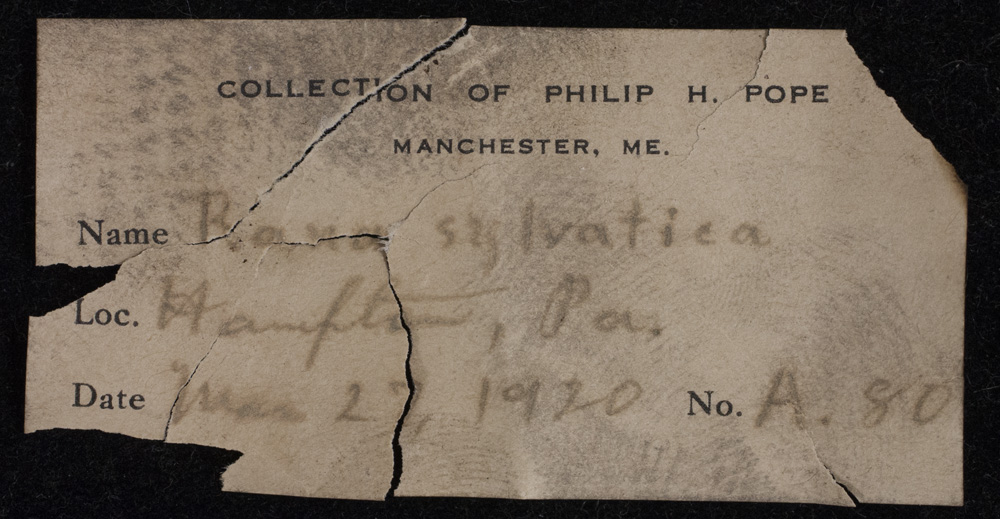 COLLECTION OF PHILIP H. POPE
MANCHESTER, ME.
Name Rana sylvatica
Loc. Hampton, Pa.
Date Mar 27, 1920 No. A. 80